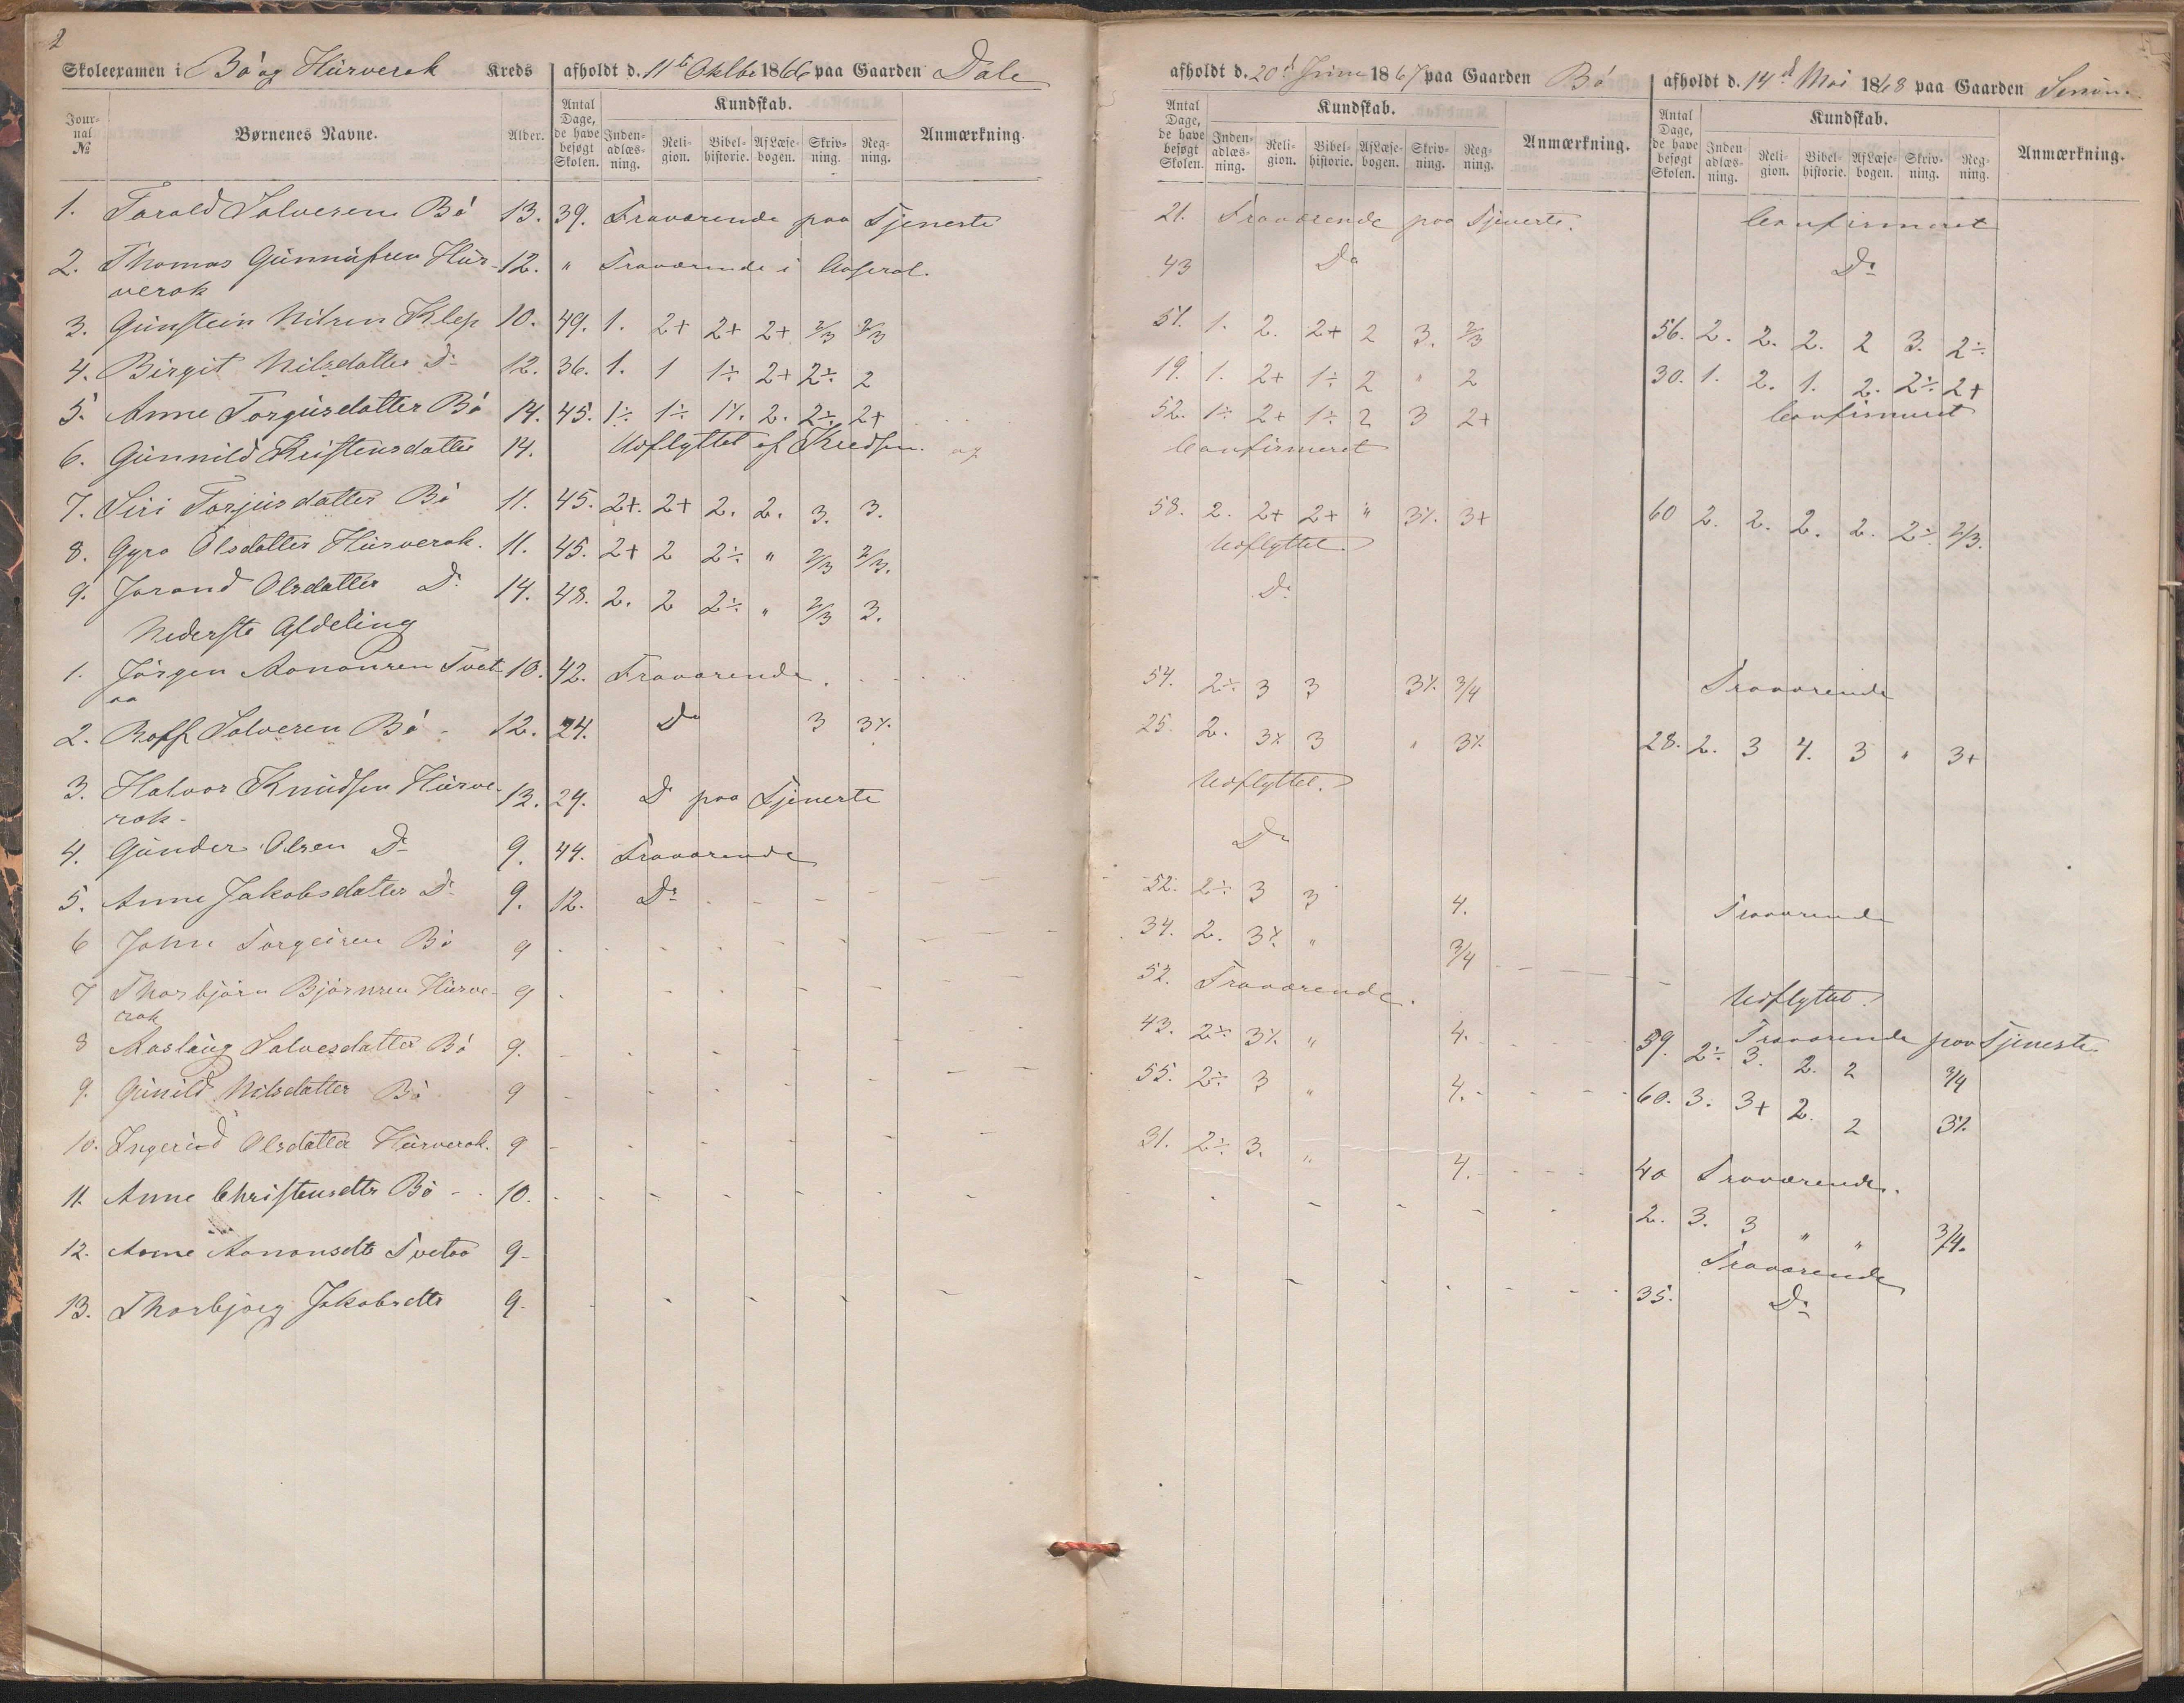 2
Skoleexamen i Bö og Hürverak Kreds afholdt d. 11te Oktbr 1866 paa Gaarden Dale
Journal No Børnenes Navne. Alder. Antal Dage, de have besøgt Skolen. Kundskab. Indenadlæsning. Religion. Bibelhistorie. Af Læsebogen. Skrivning. Regning. Anmærkning.
1. Tarald Salvesen Bö 13. 39. Fraværende paa Tjeneste
2. Thomas Günnüfsen Hür- 12. " Fraværende i
verak
3. Günstein Nilsen Klep 10. 49. 1. 2+ 2+ 2+ 2/3 2/3
4. Birgit Nilsdatter Do 12. 36. 1. 1 1÷ 2+ 2÷ 2
5. Anne Torgüsdatter Bö 14. 45. 1÷ 1÷ 1÷ 2. 2÷ 2+
6. Günnild Kristensdatter 14. Udflyttet af Kredsen.
7. Siri Torjüsdatter Bö 11. 45. 2+. 2+ 2. 2. 3. 3.
8. Gyro Olsdatter Hürverak. 11. 45. 2+ 2 2÷ " 2/3 2/3.
9. Jorond Olsdatter Do 14. 48. 2. 2 2÷ " 2/3 3.
Nederste Afdeling
1. Jörgen Aanonsen Tvet- 10. 42. Fraværende.
aa
2. Roff Salvesen Bö 12. 24. Do 3 3÷
3. Halvor Knüdsen Hürve- 13. 29. Do paa Tjeneste
rak
4. Günder Olsen Do 9. 44. Fraværende
5. Anne Jakobsdatter Do 9. 12. Do
6 John Torgeirsen Bö 9
7 Thorbjörn Björnsen Hürve- 9
rak
8 Aaslaüg Salvesdatter Bö 9.
9. Günild Nilsdatter Bö 9
10. Ingerid Olsdatter Hürverak. 9
11. Anne Christensdtr Bö 10.
12. Anne Aanonsdtr Tvetaa 9
13. Thorbjorg Jakobsdtr 9
afholdt d. 20d Juni 1867 paa Gaarden Bö
Antal Dage, de have besøgt Skolen. Kundskab. Indenadlæsning. Religion. Bibelhistorie. Af Læsebogen. Skrivning. Regning. Anmærkning.
21. Fraværende paa Tjeneste.
43 Do
51. 1. 2. 2+ 2 3. 2/3
19. 1. 2+ 1÷ 2 " 2
52. 1÷ 2+ 1÷ 2 3 2+
Confirmeret
58. 2. 2+ 2+ " 3÷ 3+
Udflyttet
Do
54. 2÷ 3 3 3÷ 3/4
25. 2. 3÷ 3 " 3÷
Udflyttet.
Do
52. 2÷ 3 3 4.
34. 2. 3÷ " 3/4
52. Fraværende.
43. 2÷ 3÷ " 4.
55. 2÷ 3 " 4.
31. 2÷ 3. " 4.
afholdt d. 14d Mai 1868 paa Gaarden
Antal Dage, de have besøgt Skolen. Kundskab. Indenadlæsning. Religion. Bibelhistorie. Af Læsebogen. Skrivning. Regning. Anmærkning.
Confirmeret
Do
56. 2. 2. 2. 2 3. 2÷
30. 1. 2. 1. 2. 2÷ 2+
Confirmeret
60 2. 2. 2. 2. 2÷ 2/3.
Fraværende
28. 2. 3 4. 3 " 3+
Fraværende
Udflyttet.
Fraværende paa Tjeneste
59. 2÷ 3. 2. 2 3/4
60. 3. 3+ 2. 2 3÷
40 Fraværende.
2. 3. 3 " " 3/4.
Fraværende
35. Do